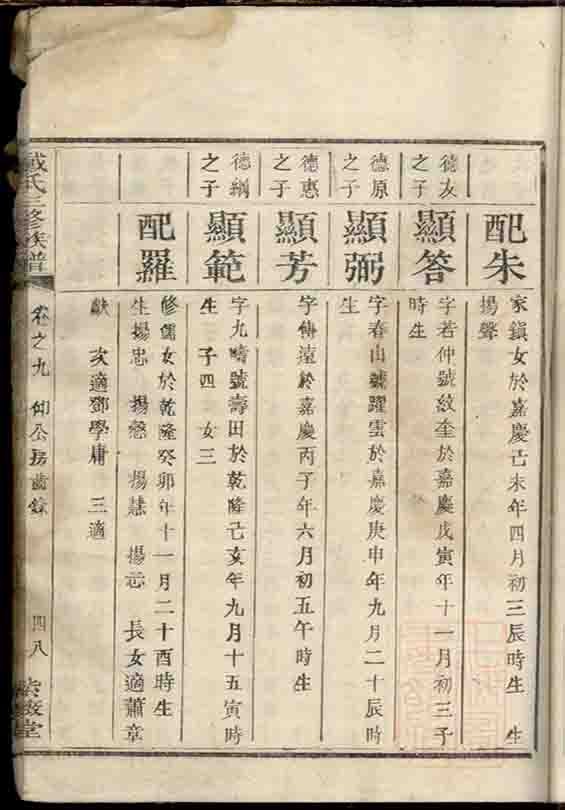 配朱
家鎮女於嘉慶己未年四月初三辰時生 生
揚聲
德友
之子
顯答
字若仲號紋奎於嘉慶戊寅年十一月初三子
時生
德原
之子
顯弼
字春山號躍雲於嘉慶庚申年九月二十辰時
生
德惠
之子
顯芳
字傳遠於嘉慶丙子年六月初五午時生
德綱
之子
顯範
字九疇號壽田於乾隆己亥年九月十五寅時
生 子四 女三
配羅
修儒女於乾隆癸卯年十一月二十酉時生
生揚忠 揚慤 揚慧 揚志 長女適蕭章
獻 次適鄧學庸 三適
氏三修族譜
卷之九 仰公房齒錄
四八
堂